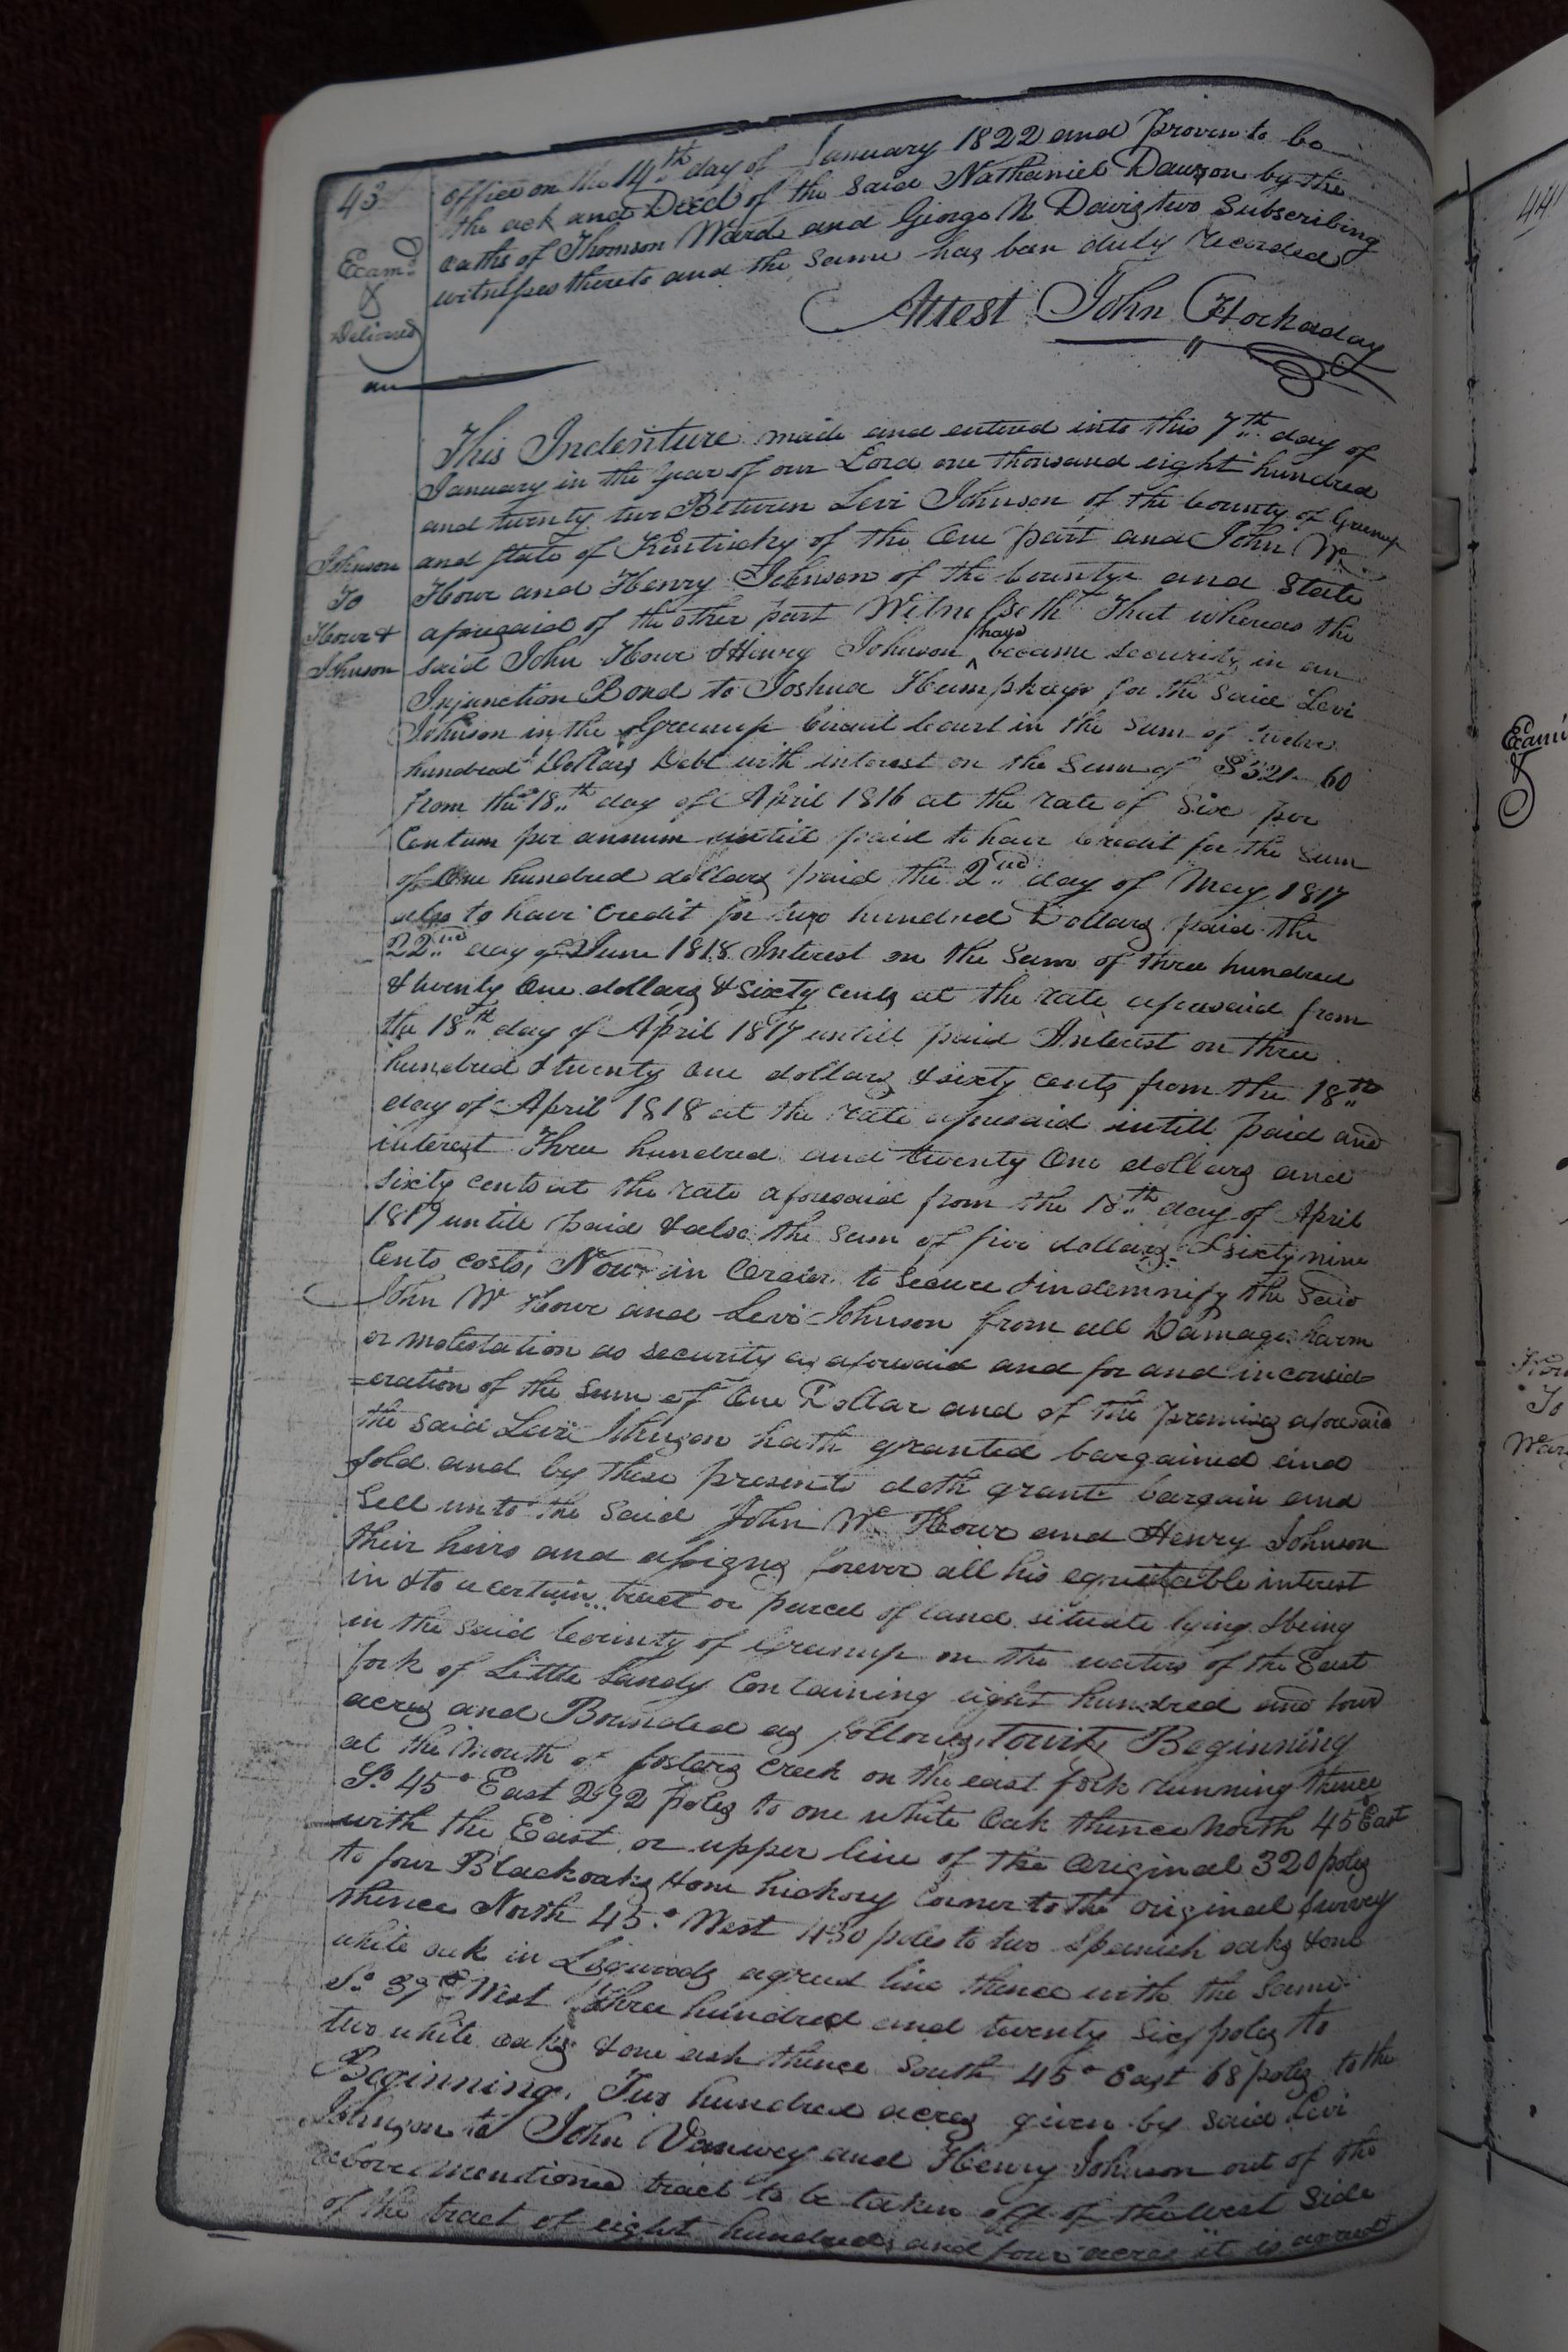 43
office on the 14th day of January 1822 and proven to be
the ack and Deed of the said Nathaniel Dawson by the
oaths of Thomson Ward and George N Davis two Subscribing
witnesses thereto and the same has ben duly recorded
Attest John Hockaday
Examd
&
Delivered
This Indenture made and entered into this 7th day of
January in the year of our Lord one thousand eight hundred
and twenty two Between Levi Johnson of the County of Greenup
and state of Kentucky of the One part and John W
Howe and Henry Johnson of the County and State
aforesaid of the other part Witnesseth That whereas the
said John Howe & Henry Johnson have became security in an
Injunction Bond to Joshua Humphreys for the said Levi
Johnson in the Greenup Circuit Court in the sum of twelve
hundred Dollars Debt with interest on the sum of $321-60
from the 18th day of April 1816 at the rate of Six per
Centum per annum untill paid to have Credit for the sum
of One hundred dollars paid the 2nd day of May 1817
also to have Credit for two hundred Dollars paid the
22nd day of June 1818 Interest on the sum of three hundred
& twenty One dollars & sixty cents at the rate aforesaid from
the 18th day of April 1817 untill paid Interest on three
hundred & twenty One dollars & sixty cents from the 18th
day of April 1818 at the rate aforesaid untill paid and
interest Three hundred and twenty One dollars and
sixty cents at the rate aforesaid from the 18th day of April
1819 untill paid & also the sum of five dollars & sixty nine
Cents costs, Now in Order to secure & indemnify the said
John W Howe and Levi Johnson from all Damage harm
or molestation as security as aforesaid and for and in consid=
=eration of the sum of One Dollar and of the premises aforesaid
the said Levi Johnson hath granted bargained and
sold and by these presents doth grant bargain and
Sell unto the said John W Howe and Henry Johnson
their heirs and assigns forever all his equitable interest
in & to a certain tract or parcel of land situate lying & being
in the said County of Greenup on the waters of the East
fork of Little Sandy Containing eight hundred and four
acres and Bounded as follows, towit, Beginning
at the mouth of fosters creek on the east fork running thence
So 45° East 292 poles to one white Oak thence North 45 East
with the East or upper line of the Original 320 poles
to four Blackoaks & one hickory Corner to the original survey
thence North 45° West 430 poles to two Spanish oaks & one
white oak in agreed line thence with the same
So 37° West Three hundred and twenty Six poles to
two white oaks & one ash thence South 45° East 68 poles to the
Beginning. Two hundred acres given by said Levi
Johnson to John Vanwey and Henry Johnson out of the
above mentioned tract to be taken off of the West Side
of the tract of eight hundred and four acres it is agreed
Johnson
To
Howe &
Johnson
44